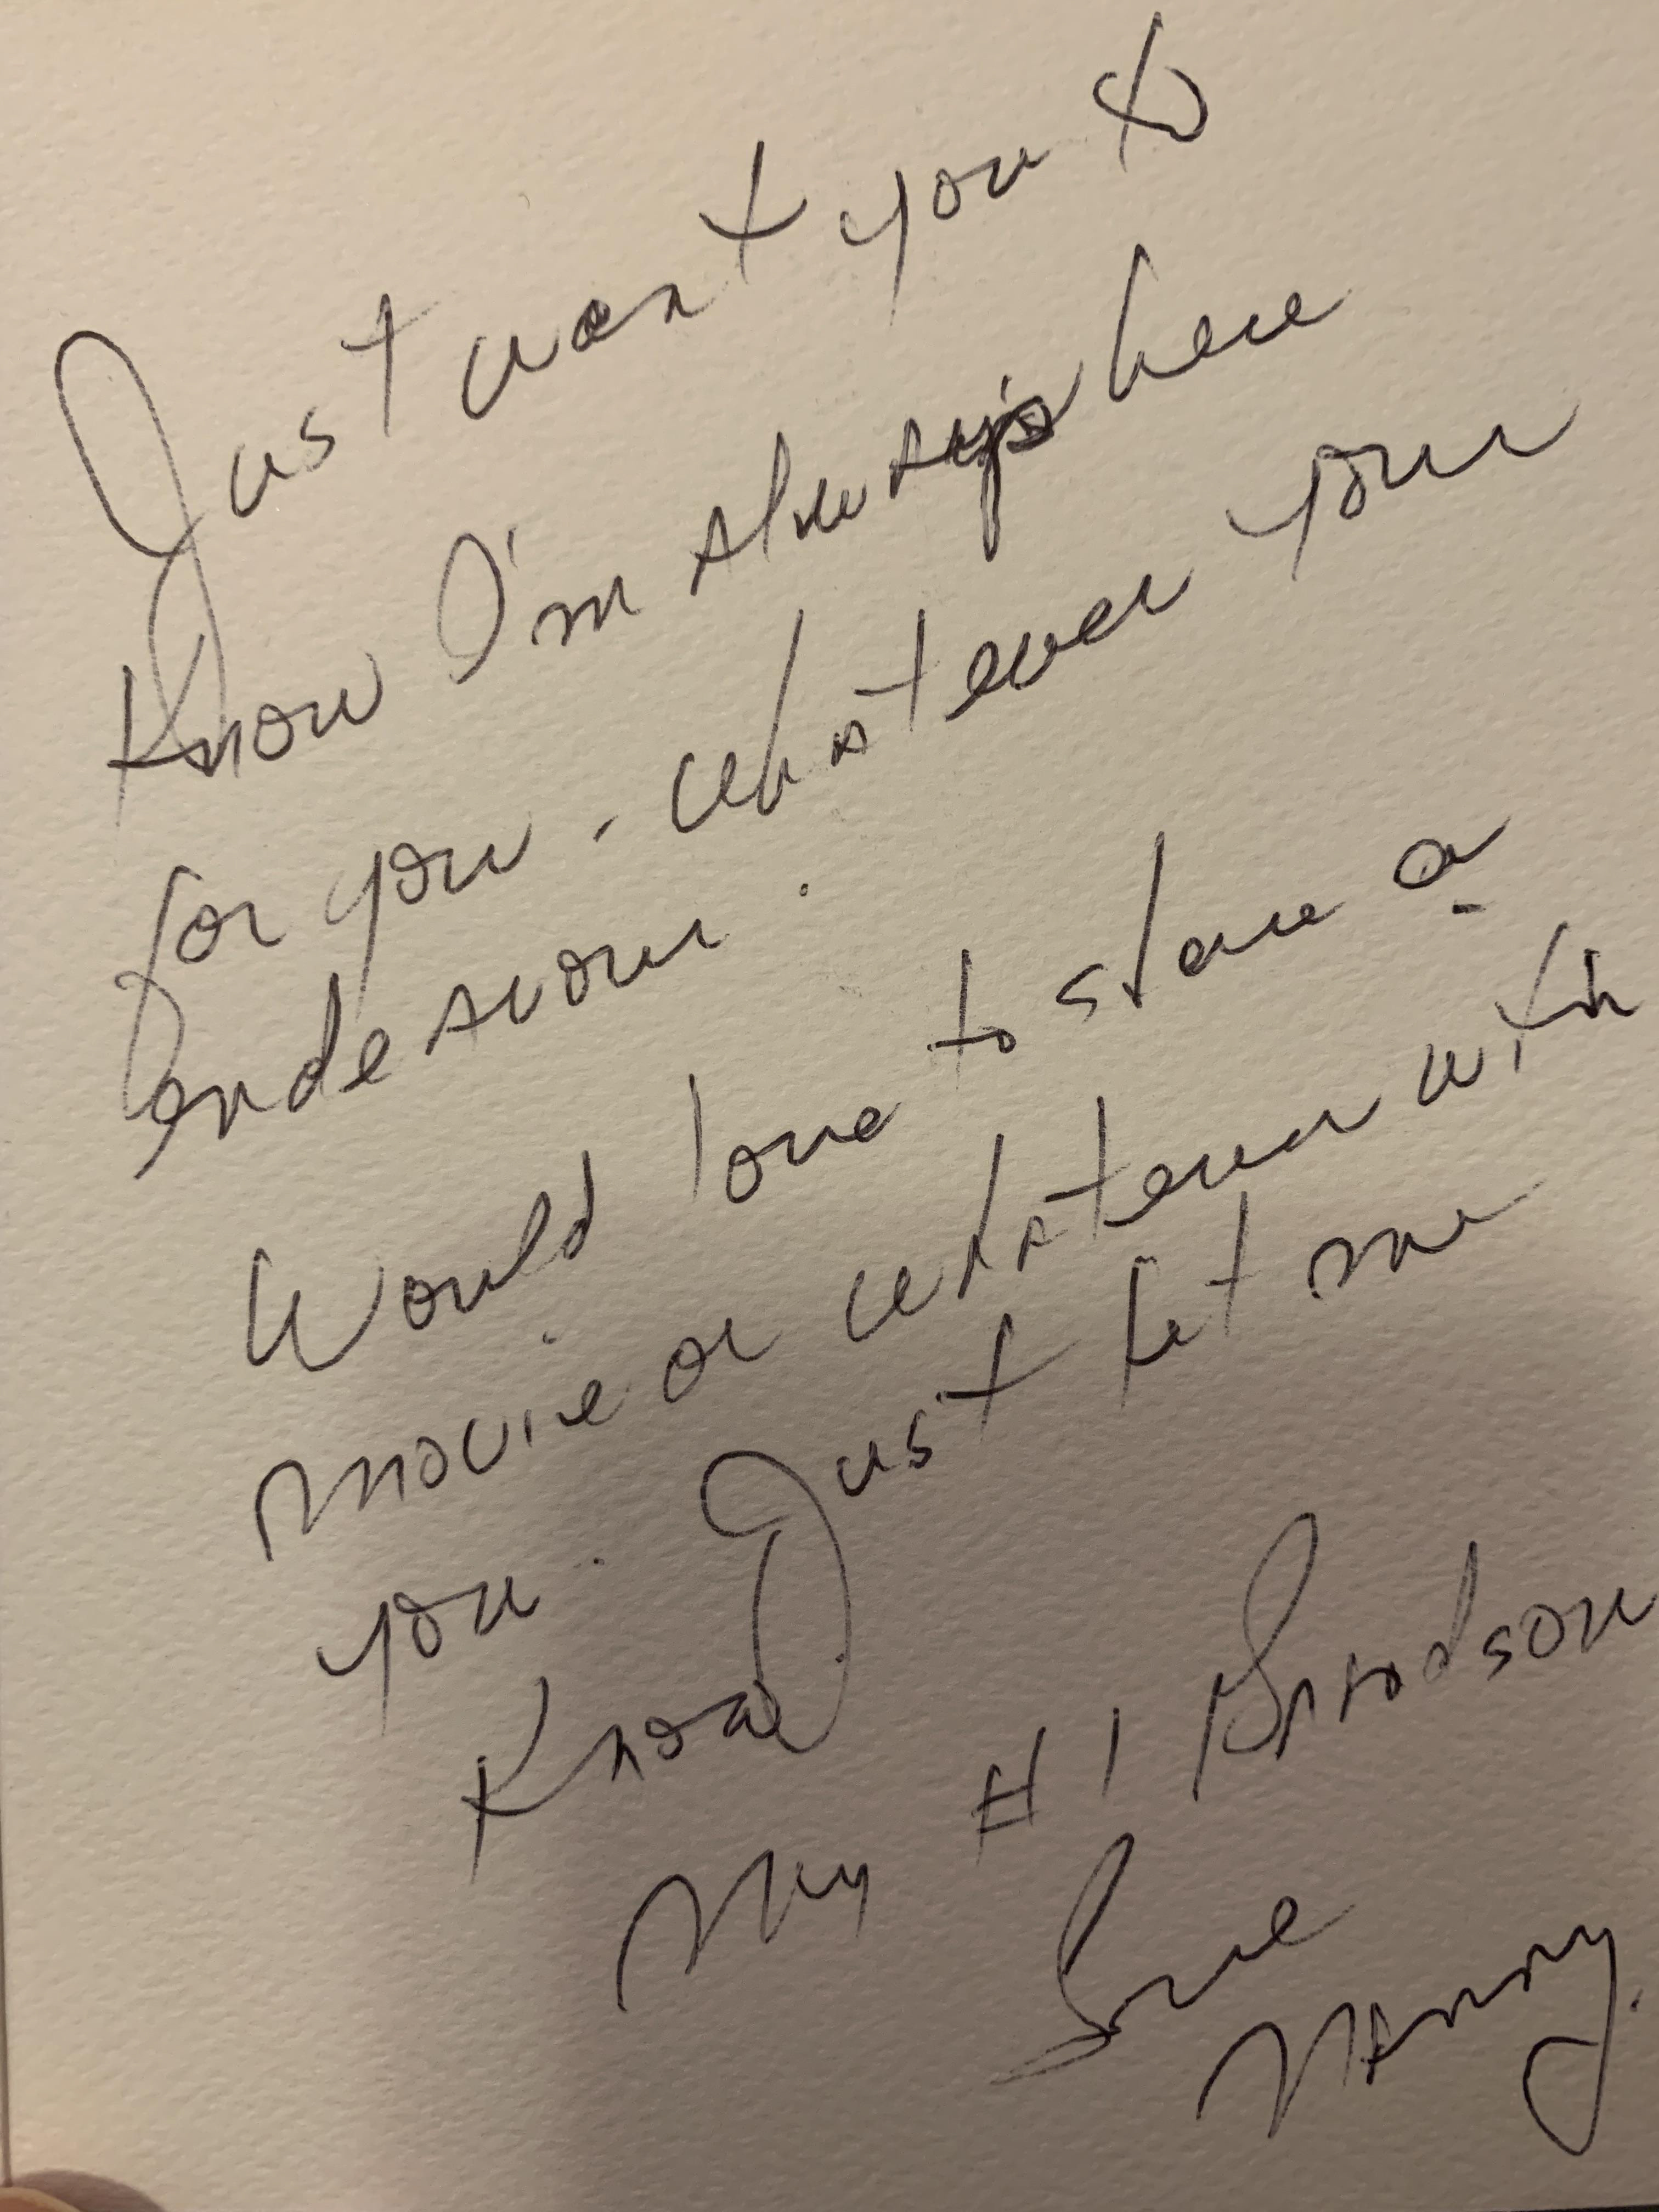 Just want you to
Know I'm always here
for you - whatever your
endeavour.
Would love to share a
movie or whatever with
you. Just let me
Know
My #1 Grandson
Love
Nanny.